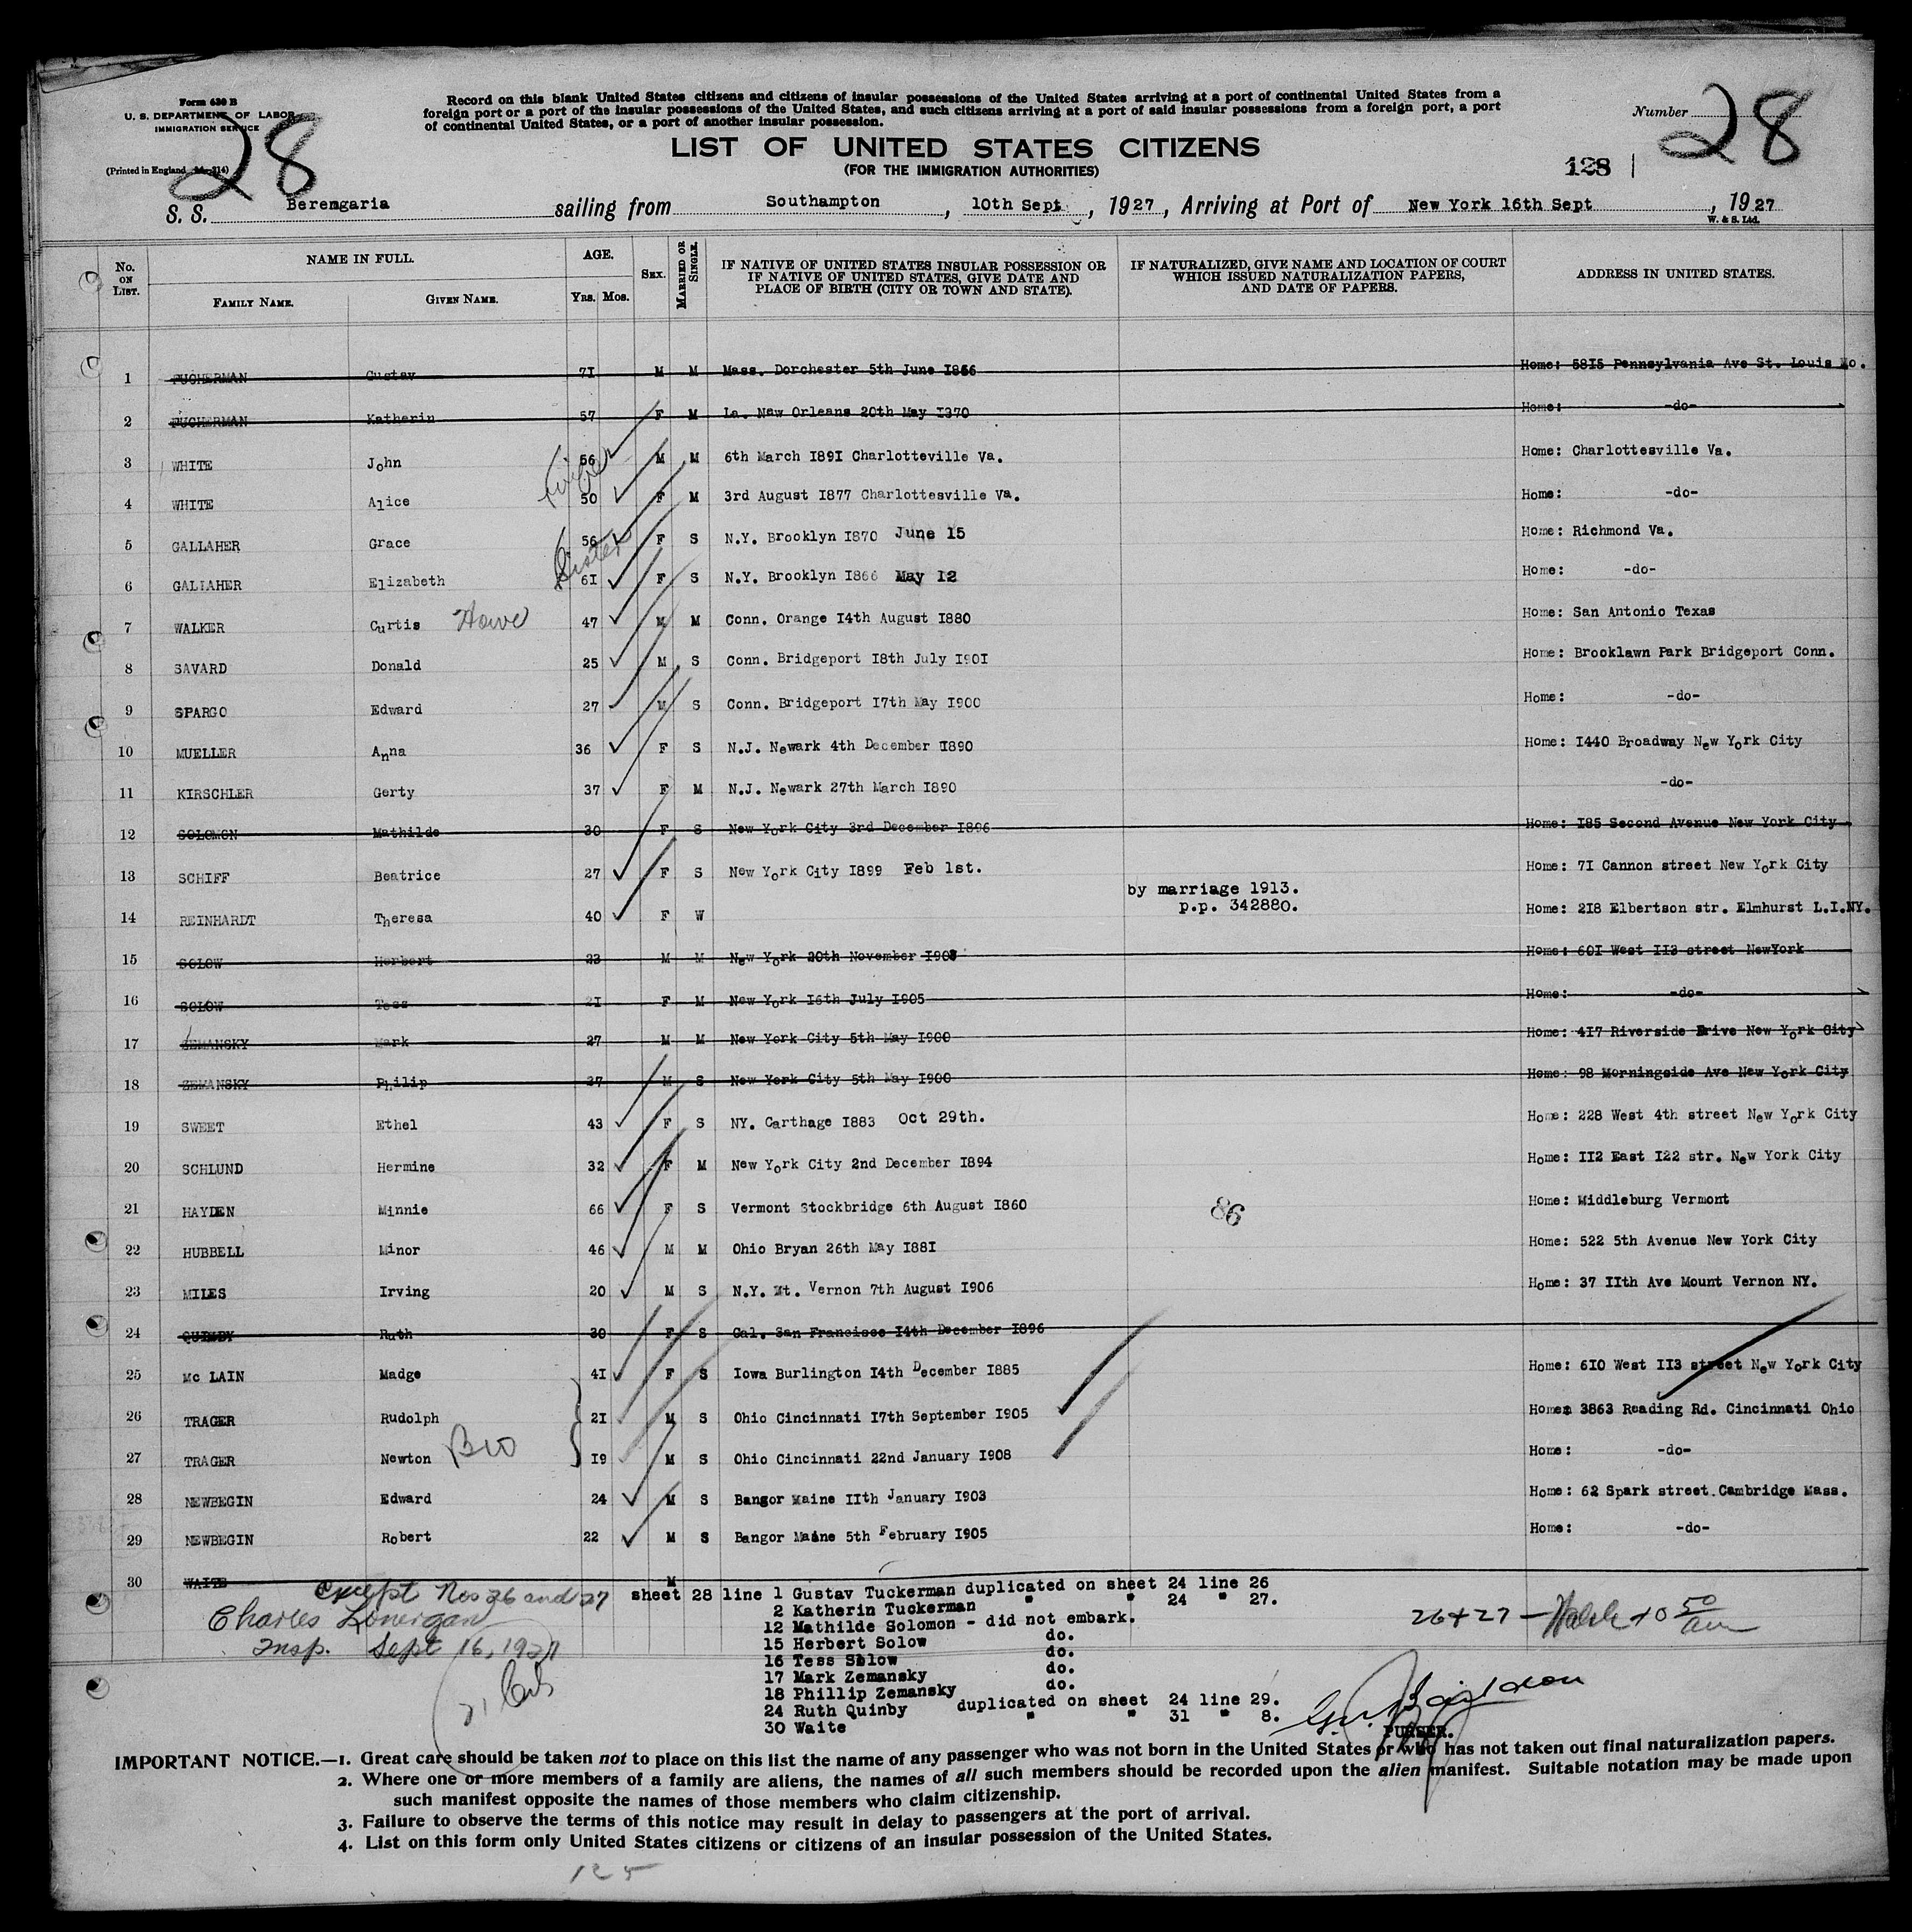 Form 630 B
U. S. DEPARTMENT OF LABOR
IMMIGRATION SERVICE
(Printed in England
28
Record on this blank United States citizens and citizens of insular possessions of the United States arriving at a port of continental United States from a
foreign port or a port of the insular possessions of the United States, and such citizens arriving at a port of said insular possessions from a foreign port, a port
of continental United States, or a port of another insular possession.
Number 28
LIST OF UNITED STATES CITIZENS
(FOR THE IMMIGRATION AUTHORITIES)
128
S. S. Berengaria sailing from Southampton, 10th Sept, 1927, Arriving at Port of New York 16th Sept, 1927
W. & S. Ltd.
No. ON LIST. NAME IN FULL. AGE. SEX. MARRIED OR SINGLE. IF NATIVE OF UNITED STATES INSULAR POSSESSION OR IF NATIVE OF UNITED STATES, GIVE DATE AND PLACE OF BIRTH (CITY OR TOWN AND STATE). IF NATURALIZED, GIVE NAME AND LOCATION OF COURT WHICH ISSUED NATURALIZATION PAPERS, AND DATE OF PAPERS. ADDRESS IN UNITED STATES.
FAMILY NAME. GIVEN NAME. YRS. MOS.
1 TUCHERMAN Gustav 71 M M Mass. Dorchester 5th June 1856 Home: 5815 Pennsylvania Ave St. Louis Mo.
2 TUCHERMAN Katherin 57 F M La. New Orleans 20th May 1870 Home: -do-
3 WHITE John 56 M M 6th March 1891 Charlotteville Va. Home: Charlottesville Va.
4 WHITE Alice 50 F M 3rd August 1877 Charlottesville Va. Home: -do-
5 GALLAHER Grace 56 F S N.Y. Brooklyn 1870 June 15 Home: Richmond Va.
Sister
6 GALLAHER Elizabeth 61 F S N.Y. Brooklyn 1866 May 12 Home: -do-
7 WALKER Curtis Howe 47 M M Conn. Orange 14th August 1880 Home: San Antonio Texas
8 SAVARD Donald 25 M S Conn. Bridgeport 18th July 1901 Home: Brooklawn Park Bridgeport Conn.
9 SPARGO Edward 27 M S Conn. Bridgeport 17th May 1900 Home: -do-
10 MUELLER Anna 36 F S N.J. Newark 4th December 1890 Home: 1440 Broadway New York City
11 KIRSCHLER Gerty 37 F M N.J. Newark 27th March 1890 -do-
12 SOLOMON Mathilde 30 F S New York City 3rd December 1896 Home: 185 Second Avenue New York City
13 SCHIFF Beatrice 27 F S New York City 1899 Feb 1st. Home: 71 Cannon street New York City
by marriage 1913.
14 REINHARDT Theresa 40 F W p.p. 342880. Home: 218 Elbertson str. Elmhurst L.I.NY.
15 SOLOW Herbert 23 M M New York 20th November 1903 Home: 601 West 113 street NewYork
16 SOLOW Tess 21 F M New York 16th July 1905 Home: -do-
17 ZEMANSKY Mark 27 M M New York City 5th May 1900 Home: 417 Riverside Drive New York City
18 ZEMANSKY Philip 27 M S New York City 5th May 1900 Home: 98 Morningside Ave New York City
19 SWEET Ethel 43 F S NY. Carthage 1883 Oct 29th. Home: 228 West 4th street New York City
20 SCHLUND Hermine 32 F M New York City 2nd December 1894 Home: 112 East 122 str. New York City
21 HAYDEN Minnie 66 F S Vermont Stockbridge 6th August 1860 86 Home: Middleburg Vermont
22 HUBBELL Minor 46 M M Ohio Bryan 26th May 1881 Home: 522 5th Avenue New York City
23 MILES Irving 20 M S N.Y. Mt. Vernon 7th August 1906 Home: 37 11th Ave Mount Vernon NY.
24 QUIMBY Ruth 30 F S Cal. San Francisco 14th December 1896
25 Mc LAIN Madge 41 F S Iowa Burlington 14th December 1885 Home: 610 West 113 street New York City
26 TRAGER Rudolph 21 M S Ohio Cincinnati 17th September 1905 Home: 3863 Reading Rd. Cincinnati Ohio
27 TRAGER Newton Bro 19 M S Ohio Cincinnati 22nd January 1908 Home: -do-
28 NEWBEGIN Edward 24 M S Bangor Maine 11th January 1903 Home: 62 Spark street. Cambridge Mass.
29 NEWBEGIN Robert 22 M S Bangor Maine 5th February 1905 Home: -do-
30 WAITE M
Except Nos 26 and 27
Charles Lonergan
Insp. Sept 16, 1927
21
sheet 28 line 1 Gustav Tuckerman duplicated on sheet 24 line 26
2 Katherin Tuckerman " " 24 " 27.
12 Mathilde Solomon - did not embark.
15 Herbert Solow do.
16 Tess Solow do.
17 Mark Zemansky do.
18 Phillip Zemansky do.
24 Ruth Quinby duplicated on sheet 24 line 29.
30 Waite " " 31 " 8.
26+27 -
PURSER.
IMPORTANT NOTICE.—1. Great care should be taken not to place on this list the name of any passenger who was not born in the United States or who has not taken out final naturalization papers.
2. Where one or more members of a family are aliens, the names of all such members should be recorded upon the alien manifest. Suitable notation may be made upon
such manifest opposite the names of those members who claim citizenship.
3. Failure to observe the terms of this notice may result in delay to passengers at the port of arrival.
4. List on this form only United States citizens or citizens of an insular possession of the United States.
125